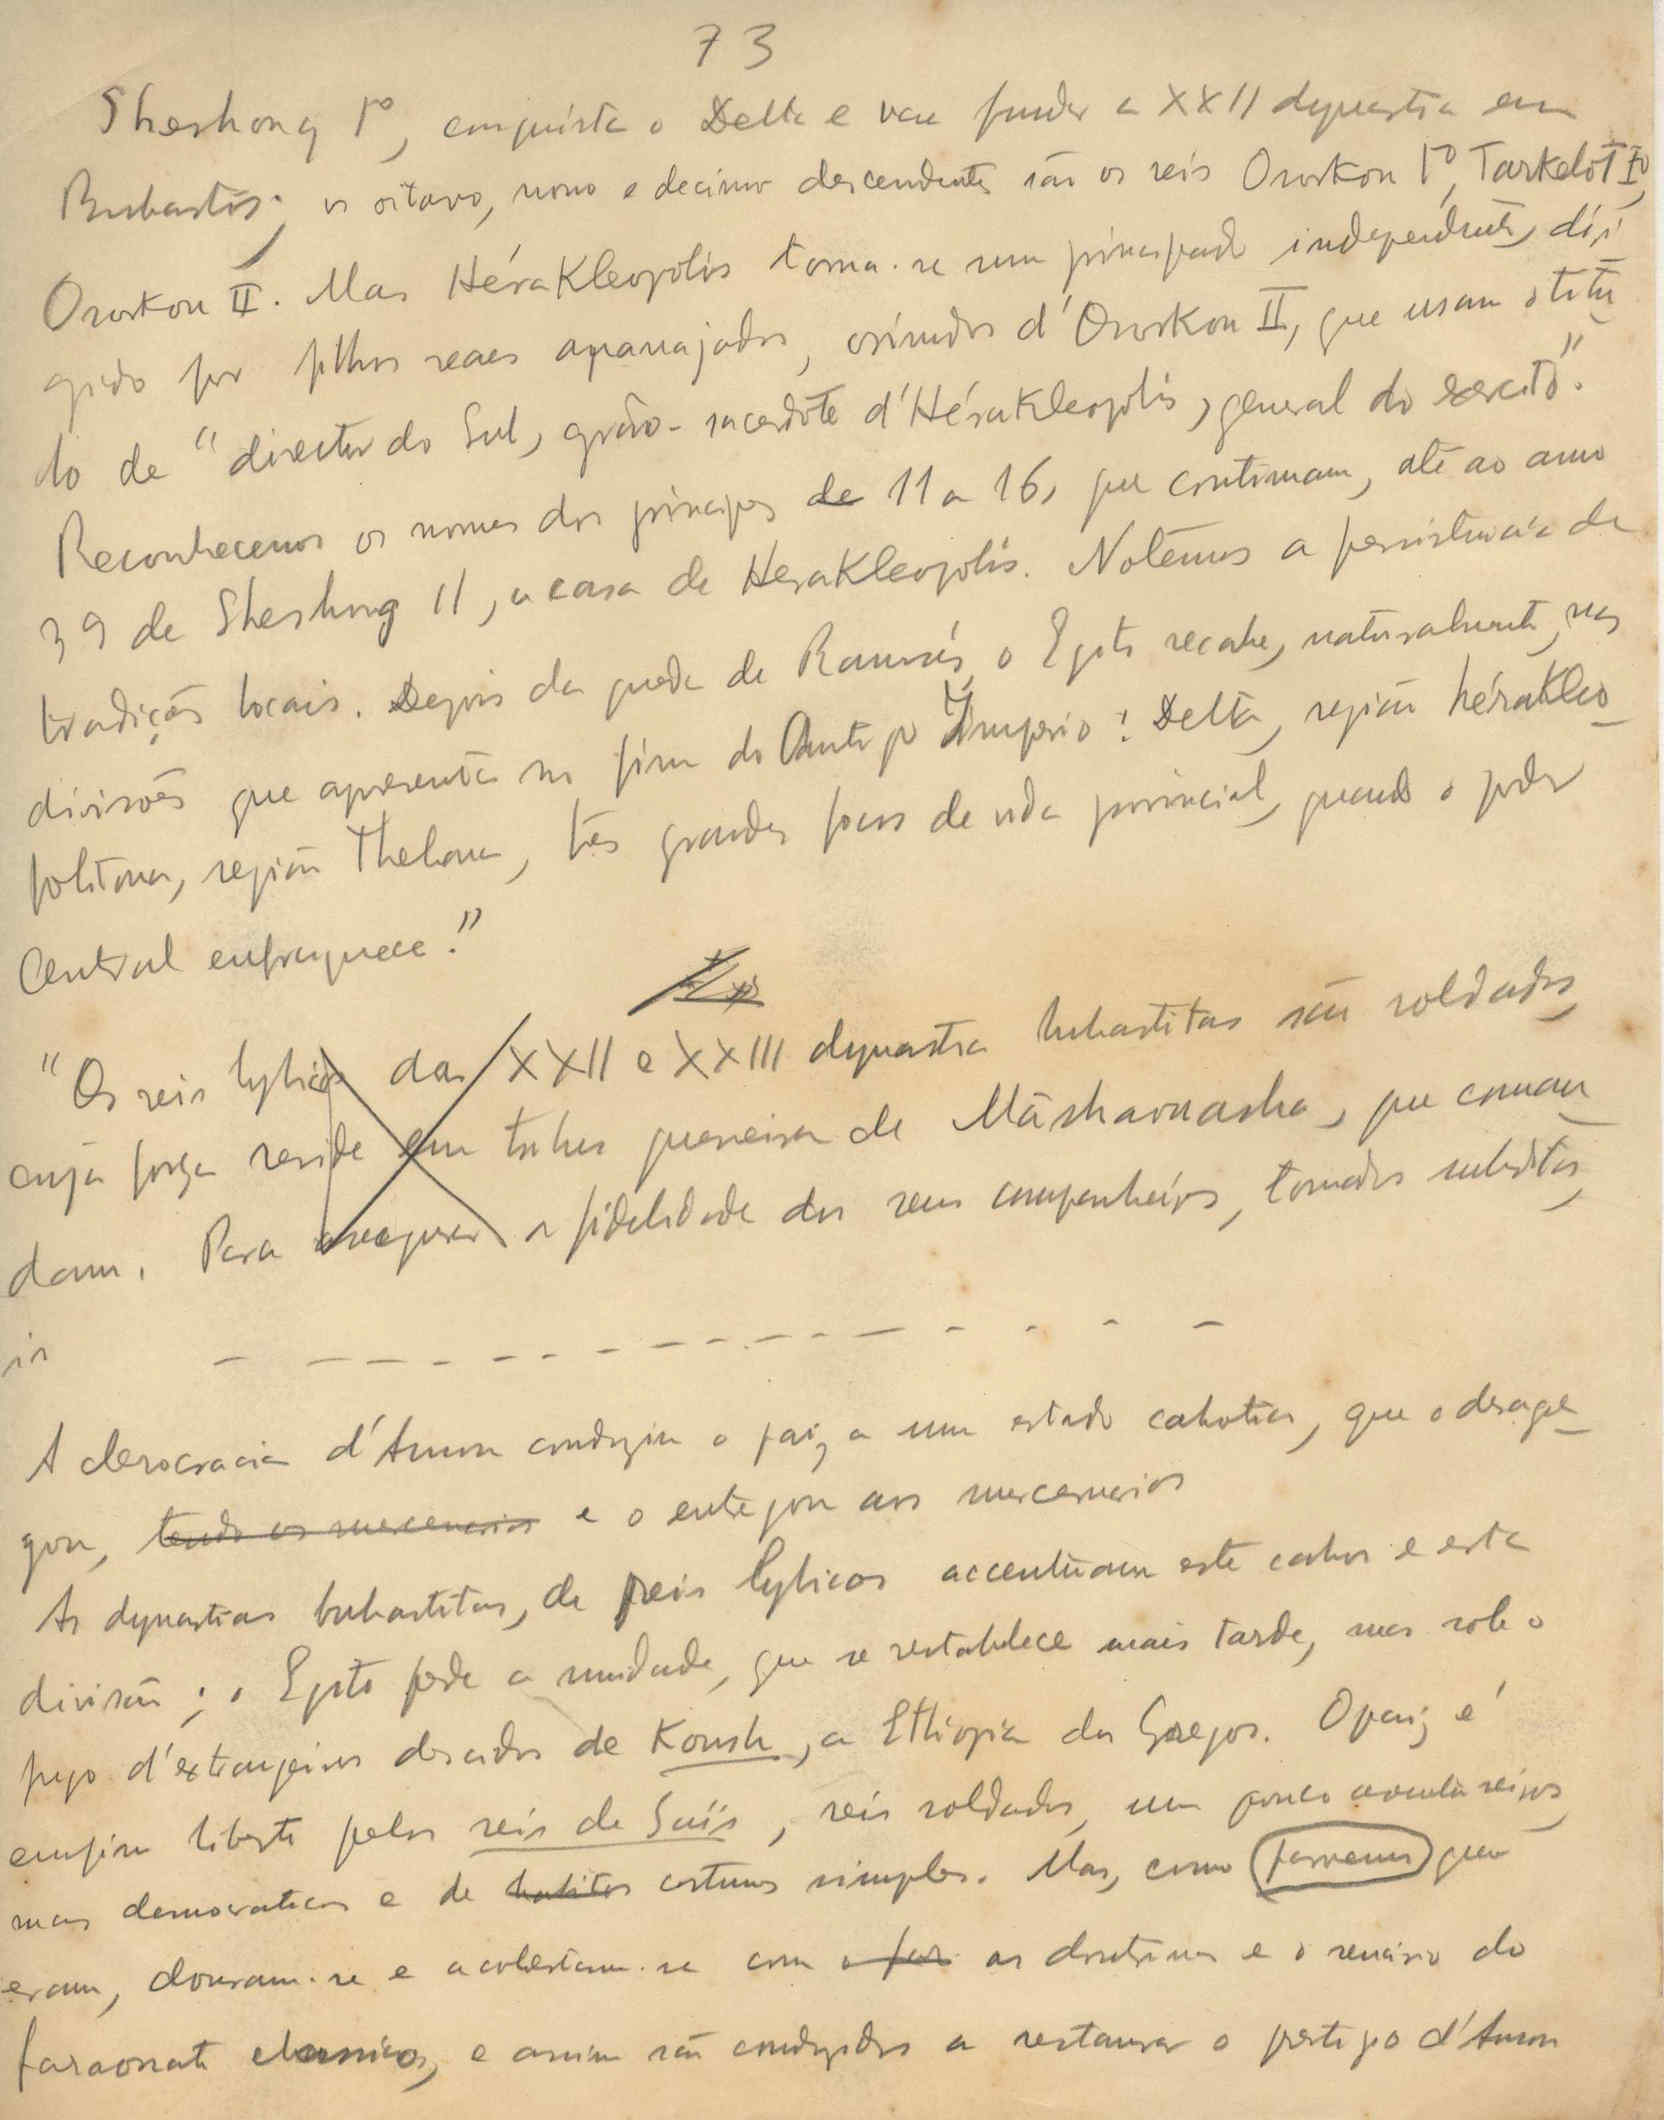 73
Sheshonq Iº, conquista o Delta e vae fundar a XXII dynastia em
Bubastis; os oitavo, nono e decimo descendentes são os reis Osorkon Iº, Tarkelôt Iº,
Osorkon II. Mas Hérakleopolis torna-se um principado independente, diri
gido por filhos reaes apanajados, oriundos d'Osorkon II, que usam o titu
lo de "director do Sul, grão-sacerdote d'Hérakleopolis, general do exercito".
Reconhecemos os nomes dos principes de 11 a 16, que continuam, até ao anno
39 de Sheshonq II, a casa de Herakleopolis. Notêmos a persistencia de
tradições locais. Depois da queda de Ramsés, o Egito recahe, naturalmente, nas
divisões que apresenta no fim do Antigo Império: Delta, região hérakleo
politana, região Thebana, tres grandes focos de vida provincial, quando o poder
Central enfraquece."
"Os reis lybicos das XXII e XXIII dynastia bubastitas são soldados,
cuja força reside em tribus guerreiras de Mâshaouasha, que coman
dam. Para assegurar a fidelidade dos seus companheiros, tornados subditos,
A clerocracia d'Amon conduziu o paiz a um estado cahotico, que o desagre
gou, tendo os mercenarios e o entregou aos mercenarios
As dynastias bubastitas, de reis lybicos accentuam este cahos e esta
divisão; o Egito perde a unidade, que se restabelece mais tarde, mas sob o
jugo d'extrangeiros descidos de Koush, a Ethiopia dos Gregos. O paiz é
emfim liberto pelos reis de Saïs, reis soldados, um pouco aventureiros,
mas democraticos e de habitos costumes simples. Mas, como parvenus que
eram, douram-se e acobertam-se com o fas as doutrinas e o scenario do
faraonato classico, e assim são conduzidos a restaurar o prestigio d'Amon